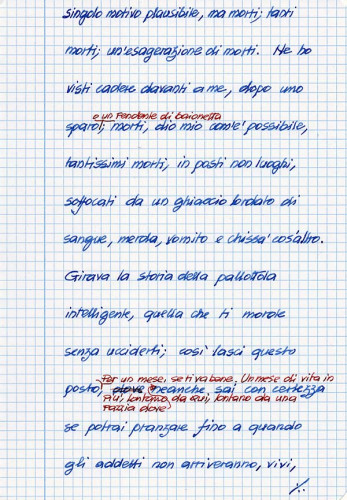 singolo motivo plausibile, ma morti; tanti
morti; un'esagerazione di morti. Ne ho
visti cadere davanti a me, dopo uno
e un fendente di baionetta
sparo, morti, dio mio com'e' possibile,
tantissimi morti, in posti non luoghi,
soffocati da un ghiaccio lordato di
sangue, merda, vomito e chissa' cos'altro.
Girava la storia della pallottola
intelligente, quella che ti morde
senza ucciderti; così lasci questo
Per un mese, se ti va bene. Un mese di vita in
posto, dove neanche sai con certezza
più, lontano da qui, lontano da una
pazzia dove
se potrai pranzare fino a quando
gli addetti non arriveranno, vivi,